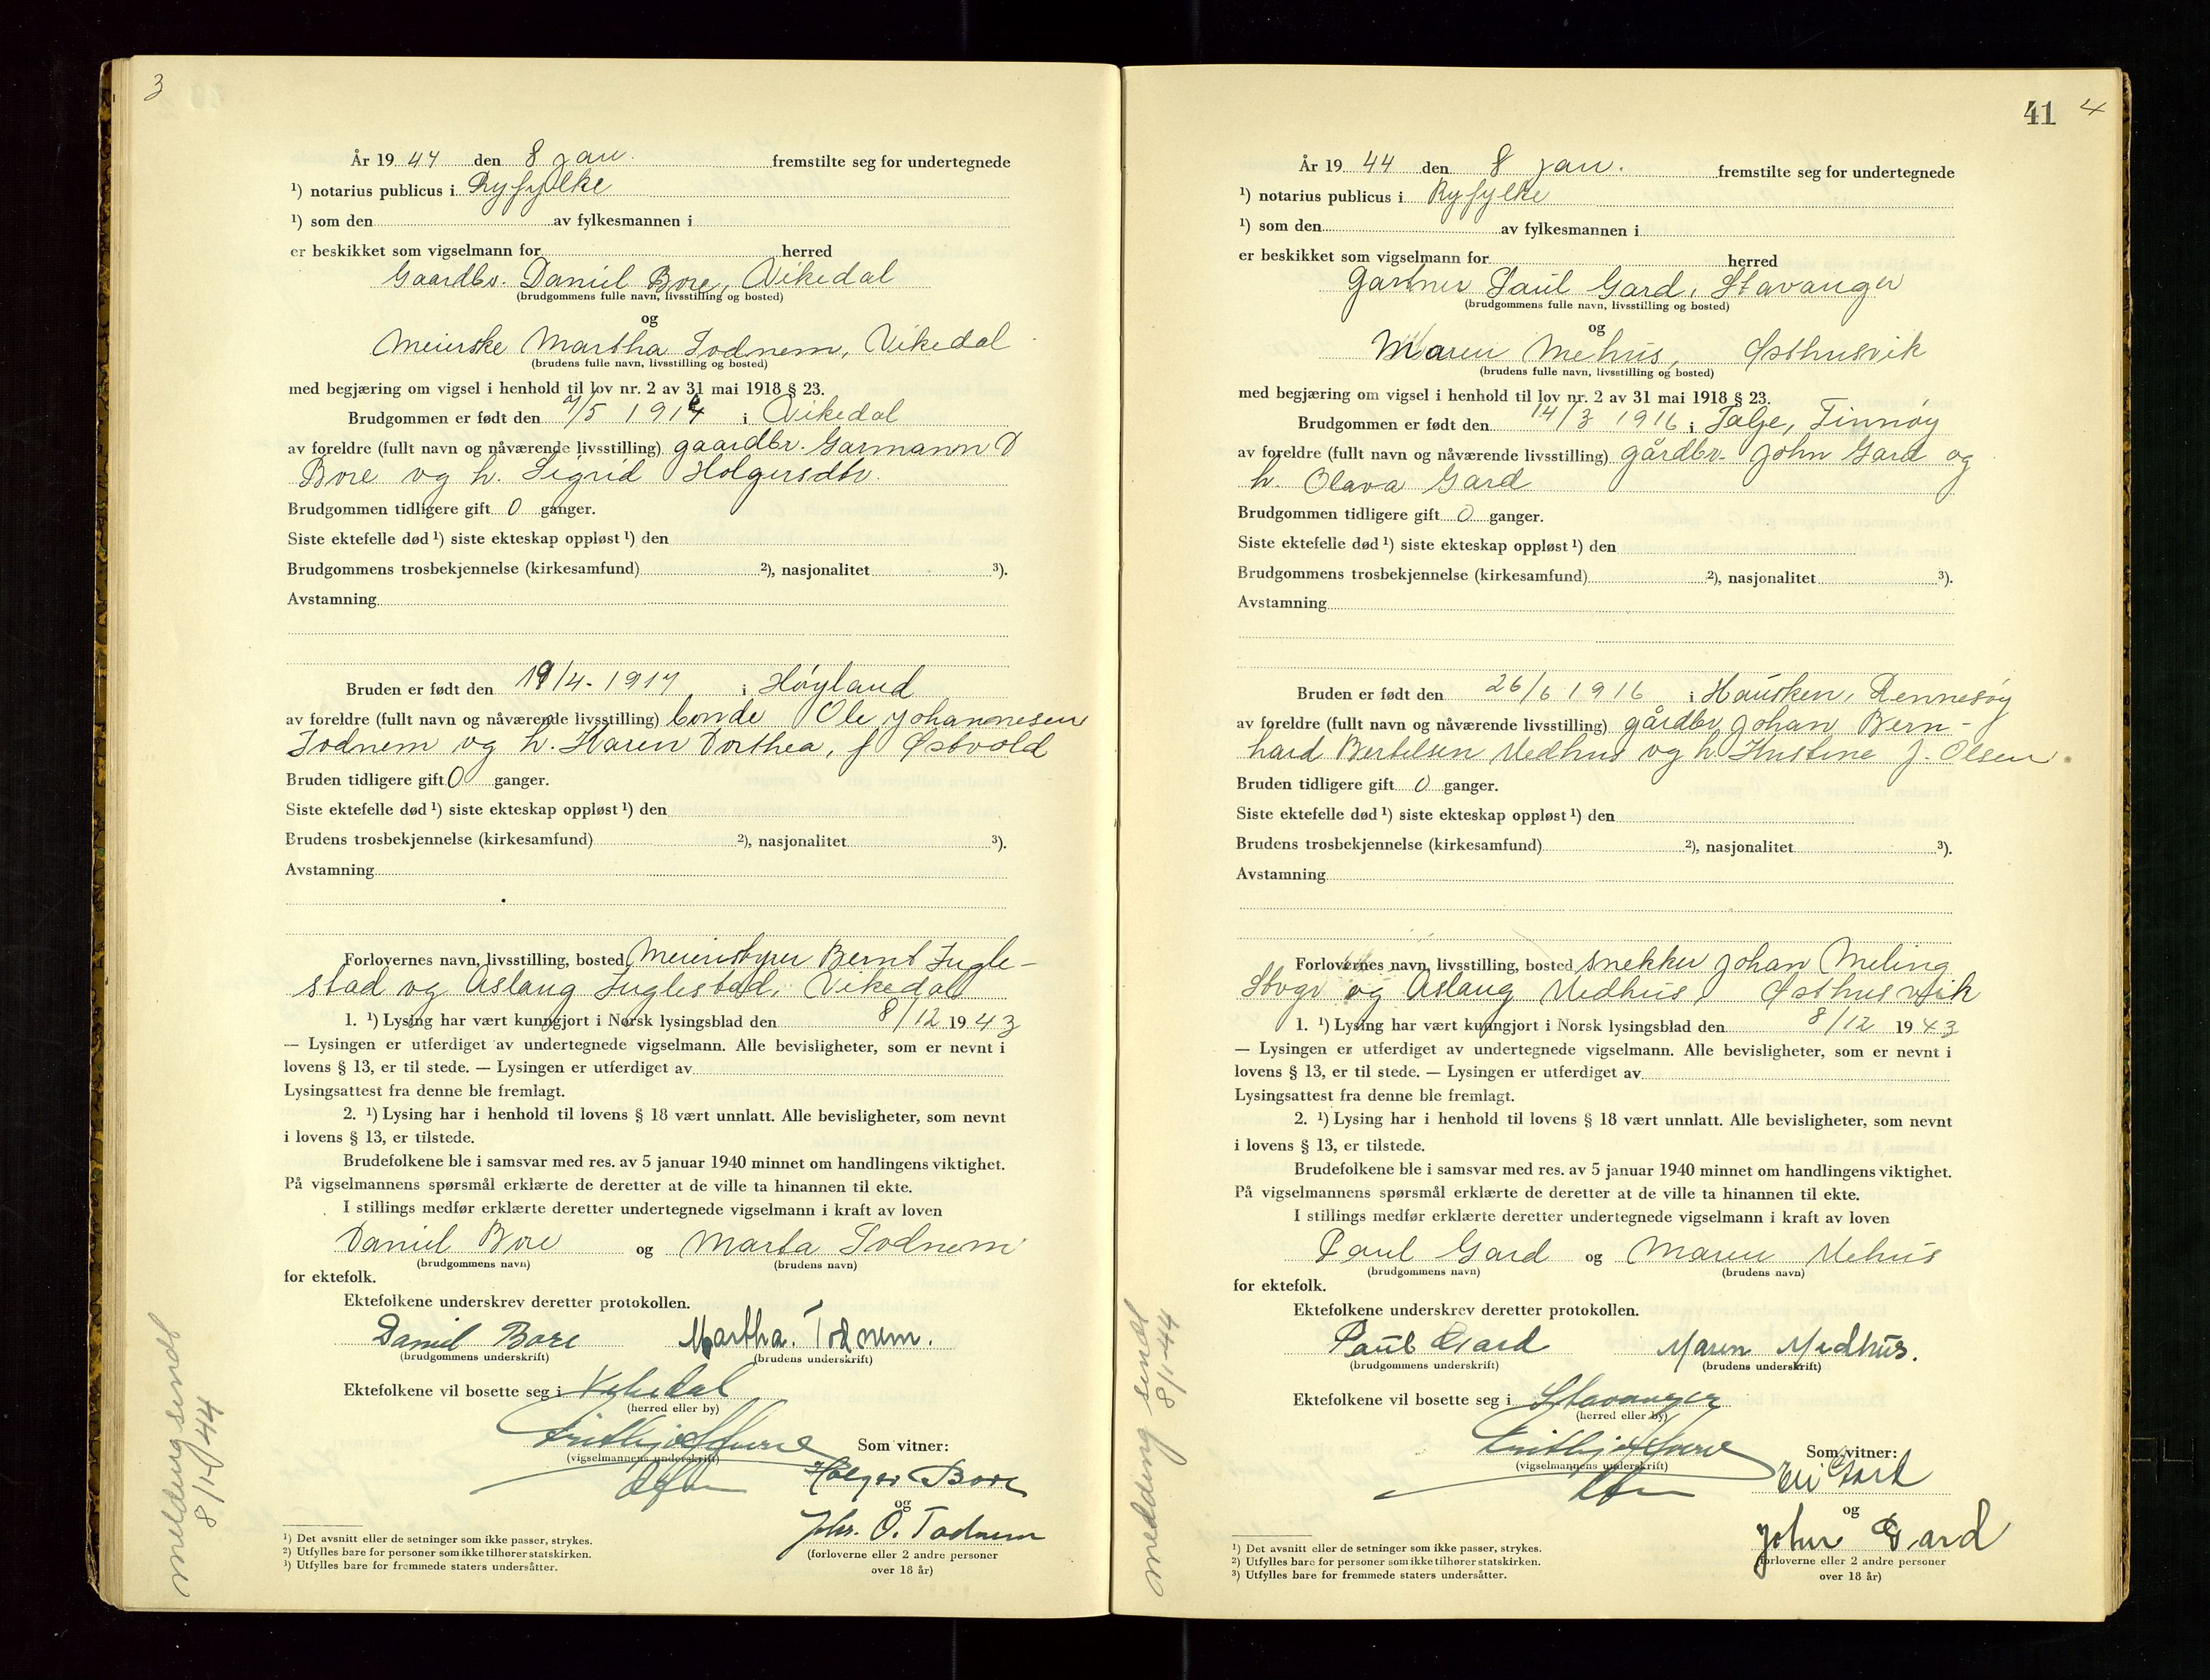 3
År 19 44 den 8 jan. fremstilte seg for undertegnede
¹) notarius publicus i Ryfylke
¹) som den av fylkesmannen i
er beskikket som vigselmann for herred
Gaardbr. Daniel Bore, Vikedal
(brudgommens fulle navn, livsstilling og bosted)
og
Meierske Martha Todnem, Vikedal
(brudens fulle navn, livsstilling og bosted)
med begjæring om vigsel i henhold til lov nr. 2 av 31 mai 1918 § 23.
Brudgommen er født den /5 191 i Vikedal
av foreldre (fullt navn og nåværende livsstilling) gaardbr. Garmann D
Bore og h. Sigrid Holgersdtr.
Brudgommen tidligere gift 0 ganger.
Siste ektefelle død ¹) siste ekteskap oppløst ¹) den
Brudgommens trosbekjennelse (kirkesamfund) ²), nasjonalitet ³).
Avstamning
Bruden er født den 19/4- 1917 i Høyland
av foreldre (fullt navn og nåværende livsstilling) bonde Ole Johannesen
Todnem og h. Karen Dorthea, f Østvold
Bruden tidligere gift 0 ganger.
Siste ektefelle død ¹) siste ekteskap oppløst ¹) den
Brudens trosbekjennelse (kirkesamfund) ²), nasjonalitet ³).
Avstamning
Forlovernes navn, livsstilling, bosted Meieribstyrer Bernt Fugle-
stad og Aslaug Fuglestad, Vikedal
1. ¹) Lysing har vært kunngjort i Norsk lysingsblad den 8/12 19 43
— Lysingen er utferdiget av undertegnede vigselmann. Alle bevisligheter, som er nevnt i
lovens § 13, er til stede. — Lysingen er utferdiget av
Lysingsattest fra denne ble fremlagt.
2. ¹) Lysing har i henhold til lovens § 18 vært unnlatt. Alle bevisligheter, som nevnt
i lovens § 13, er tilstede.
Brudefolkene ble i samsvar med res. av 5 januar 1940 minnet om handlingens viktighet.
På vigselmannens spørsmål erklærte de deretter at de ville ta hinannen til ekte.
I stillings medfør erklærte deretter undertegnede vigselmann i kraft av loven
Daniel Bore og Marta Todnem
(brudgommens navn) (brudens navn)
for ektefolk.
Ektefolkene underskrev deretter protokollen.
Daniel Bore Martha. Todnem.
(brudgommens underskrift) (brudens underskrift)
Ektefolkene vil bosette seg i Vikedal
(herred eller by)
Som vitner:
(vigselmannens underskrift)
Holger Bore
og
Johs. O. Todnem
(forloverne eller 2 andre personer
over 18 år)
¹) Det avsnitt eller de setninger som ikke passer, strykes.
²) Utfylles bare for personer som ikke tilhører statskirken.
³) Utfylles bare for fremmede staters undersåtter.
melding sendt
8/1-44
41 4
År 19 44 den 8 jan. fremstilte seg for undertegnede
¹) notarius publicus i Ryfylke
¹) som den av fylkesmannen i
er beskikket som vigselmann for herred
Gartner Paul Gard, Stavanger
(brudgommens fulle navn, livsstilling og bosted)
og
Maren Mehus, Østhusvik
(brudens fulle navn, livsstilling og bosted)
med begjæring om vigsel i henhold til lov nr. 2 av 31 mai 1918 § 23.
Brudgommen er født den 14/3 1916 i Talge, Finnøy
av foreldre (fullt navn og nåværende livsstilling) gårdbr. John Gard og
h. Olava Gard
Brudgommen tidligere gift 0 ganger.
Siste ektefelle død ¹) siste ekteskap oppløst ¹) den
Brudgommens trosbekjennelse (kirkesamfund) ²), nasjonalitet ³).
Avstamning
Bruden er født den 26/6 1916 i Hausken, Rennesøy
av foreldre (fullt navn og nåværende livsstilling) gårdbr Johan Bern-
hard Bertelsen Medhus og h. Kristine J. Olsen
Bruden tidligere gift 0 ganger.
Siste ektefelle død ¹) siste ekteskap oppløst ¹) den
Brudens trosbekjennelse (kirkesamfund) ²), nasjonalitet ³).
Avstamning
Forlovernes navn, livsstilling, bosted snekker Johan Meling
Stvgr og Aslaug Medhus, Østhusvik
1. ¹) Lysing har vært kunngjort i Norsk lysingsblad den 8/12 19 43
— Lysingen er utferdiget av undertegnede vigselmann. Alle bevisligheter, som er nevnt i
lovens § 13, er til stede. — Lysingen er utferdiget av
Lysingsattest fra denne ble fremlagt.
2. ¹) Lysing har i henhold til lovens § 18 vært unnlatt. Alle bevisligheter, som nevnt
i lovens § 13, er tilstede.
Brudefolkene ble i samsvar med res. av 5 januar 1940 minnet om handlingens viktighet.
På vigselmannens spørsmål erklærte de deretter at de ville ta hinannen til ekte.
I stillings medfør erklærte deretter undertegnede vigselmann i kraft av loven
Paul Gard og Maren Mehus
(brudgommens navn) (brudens navn)
for ektefolk.
Ektefolkene underskrev deretter protokollen.
Paul Gard Maren Medhus.
(brudgommens underskrift) (brudens underskrift)
Ektefolkene vil bosette seg i Stavanger
(herred eller by)
Som vitner:
(vigselmannens underskrift)
Gard
og
John Gard
(forloverne eller 2 andre personer
over 18 år)
¹) Det avsnitt eller de setninger som ikke passer, strykes.
²) Utfylles bare for personer som ikke tilhører statskirken.
³) Utfylles bare for fremmede staters undersåtter.
melding sendt
8/1-44